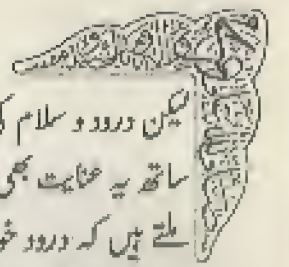 لیکن درود و سلام ک
ساتھ یہ عنایت بھی
ملتے ہیں کہ درود خو